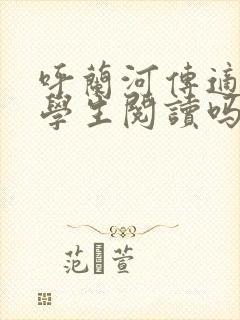 呼蘭河傳適
學生閱讀嗎
范 萱